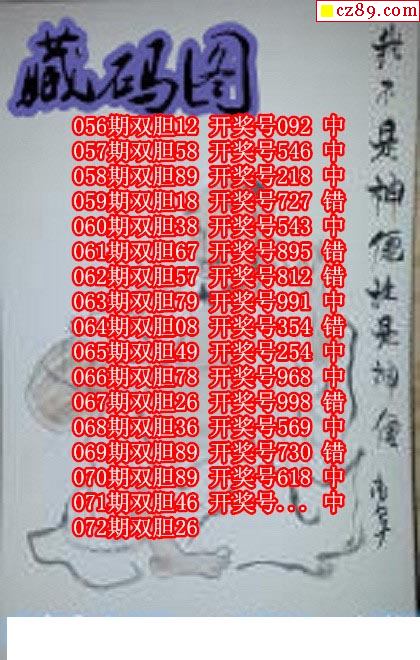 cz89.com
藏码图
056期双胆12 开奖号092 中
057期双胆58 开奖号546 中
058期双胆89 开奖号218 中
059期双胆18 开奖号727 错
060期双胆38 开奖号543 中
061期双胆67 开奖号895 错
062期双胆57 开奖号812 错
063期双胆79 开奖号991 中
064期双胆08 开奖号354 错
065期双胆49 开奖号254 中
066期双胆78 开奖号968 中
067期双胆26 开奖号998 错
068期双胆36 开奖号569 中
069期双胆89 开奖号730 错
070期双胆89 开奖号618 中
071期双胆46 开奖号... 中
072期双胆26
我不是神
是神